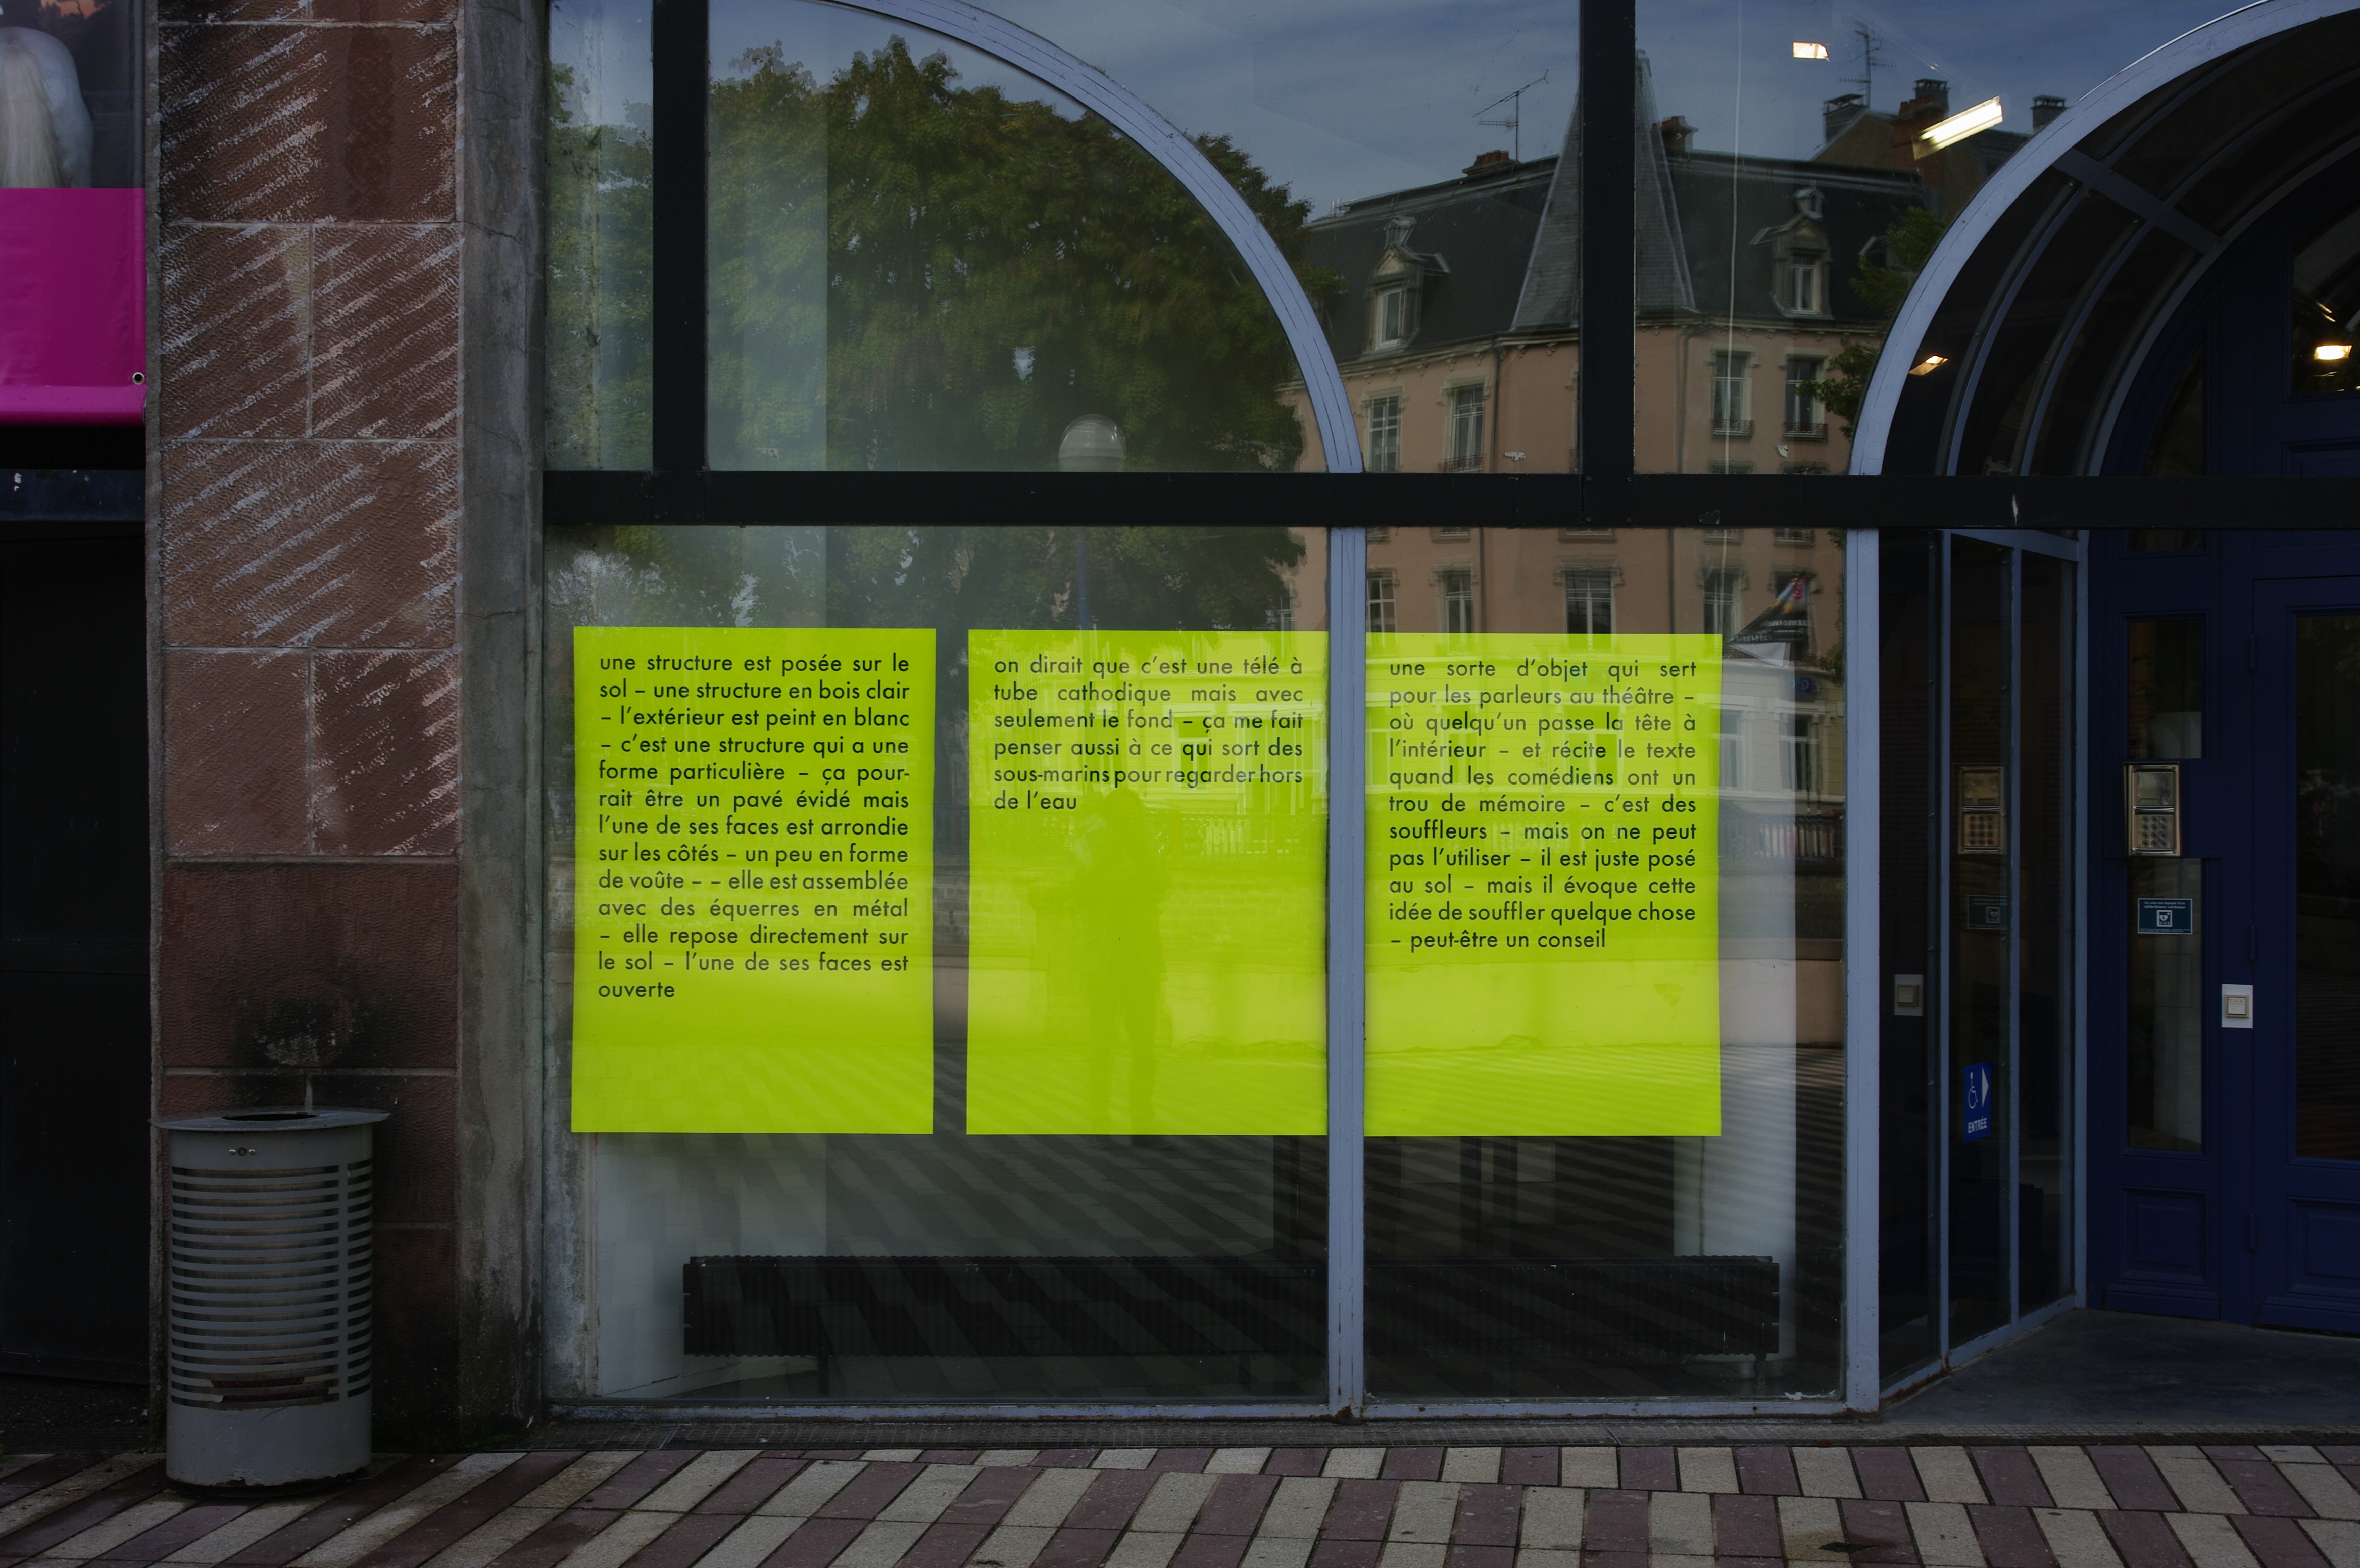 une structure est posée sur le
sol – une structure en bois clair
– l'extérieur est peint en blanc
– c'est une structure qui a une
forme particulière – ça pour-
rait être un pavé évidé mais
l'une de ses faces est arrondie
sur les côtés – un peu en forme
de voûte – – elle est assemblée
avec des équerres en métal
– elle repose directement sur
le sol – l'une de ses faces est
ouverte
on dirait que c'est une télé à
tube cathodique mais avec
seulement le fond – ça me fait
penser aussi à ce qui sort des
sous-marins pour regarder hors
de l'eau
une sorte d'objet qui sert
pour les parleurs au théâtre –
où quelqu'un passe la tête à
l'intérieur – et récite le texte
quand les comédiens ont un
trou de mémoire – c'est des
souffleurs – mais on ne peut
pas l'utiliser – il est juste posé
au sol – mais il évoque cette
idée de souffler quelque chose
– peut-être un conseil
ENTRÉE